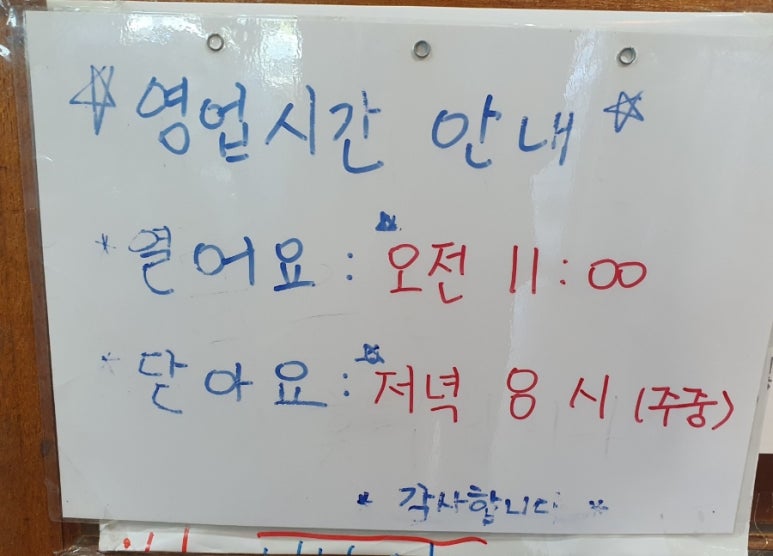 ☆영업시간 안내☆
* 열어요 : 오전 11:00
* 닫아요 : 저녁 8시 (주중)
* 감사합니다 *